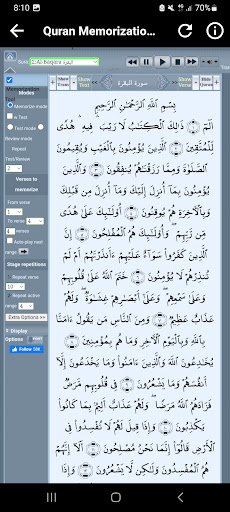 8:10
76%
Quran Memorizatio...
Sura
2.Al-Baqora البقرة
Memorization
Show Trans
Show Text
سورة البقرة
Hide Quran
Modes
Memorize mode
is Text
Test mode
Review mode
Repeat
Test/Review
2
Verses to memorize
From verse
1
To verse
4
4 verses
Auto play next range
Stage repetitions
Repeat verse
10
Repeat active range
4
Extra Options >>
Display Options
Follow
بِسْمِ ٱللَّهِ ٱلرَّحْمَٰنِ ٱلرَّحِيمِ
الٓمٓ ۝ ذَٰلِكَ ٱلْكِتَٰبُ لَا رَيْبَ ۛ فِيهِ ۛ هُدًى
لِّلْمُتَّقِينَ ۝ ٱلَّذِينَ يُؤْمِنُونَ بِٱلْغَيْبِ وَيُقِيمُونَ
ٱلصَّلَوٰةَ وَمِمَّا رَزَقْنَٰهُمْ يُنفِقُونَ ۝ وَٱلَّذِينَ
يُؤْمِنُونَ بِمَآ أُنزِلَ إِلَيْكَ وَمَآ أُنزِلَ مِن قَبْلِكَ
وَبِٱلْءَاخِرَةِ هُمْ يُوقِنُونَ ۝ أُو۟لَٰٓئِكَ عَلَىٰ هُدًى
مِّن رَّبِّهِمْ ۖ وَأُو۟لَٰٓئِكَ هُمُ ٱلْمُفْلِحُونَ ۝ إِنَّ
ٱلَّذِينَ كَفَرُوا۟ سَوَآءٌ عَلَيْهِمْ ءَأَنذَرْتَهُمْ أَمْ لَمْ
تُنذِرْهُمْ لَا يُؤْمِنُونَ ۝ خَتَمَ ٱللَّهُ عَلَىٰ
قُلُوبِهِمْ وَعَلَىٰ سَمْعِهِمْ ۖ وَعَلَىٰٓ أَبْصَٰرِهِمْ غِشَٰوَةٌ ۖ وَلَهُمْ
عَذَابٌ عَظِيمٌ ۝ وَمِنَ ٱلنَّاسِ مَن يَقُولُ ءَامَنَّا
بِٱللَّهِ وَبِٱلْيَوْمِ ٱلْءَاخِرِ وَمَا هُم بِمُؤْمِنِينَ ۝
يُخَٰدِعُونَ ٱللَّهَ وَٱلَّذِينَ ءَامَنُوا۟ وَمَا يَخْدَعُونَ إِلَّآ
أَنفُسَهُمْ وَمَا يَشْعُرُونَ ۝ فِى قُلُوبِهِم مَّرَضٌ
فَزَادَهُمُ ٱللَّهُ مَرَضًا ۖ وَلَهُمْ عَذَابٌ أَلِيمٌۢ بِمَا كَانُوا۟
يَكْذِبُونَ ۝ وَإِذَا قِيلَ لَهُمْ لَا تُفْسِدُوا۟ فِى
ٱلْأَرْضِ قَالُوٓا۟ إِنَّمَا نَحْنُ مُصْلِحُونَ ۝ أَلَآ إِنَّهُمْ
هُمُ ٱلْمُفْسِدُونَ وَلَٰكِن لَّا يَشْعُرُونَ ۝ وَإِذَا